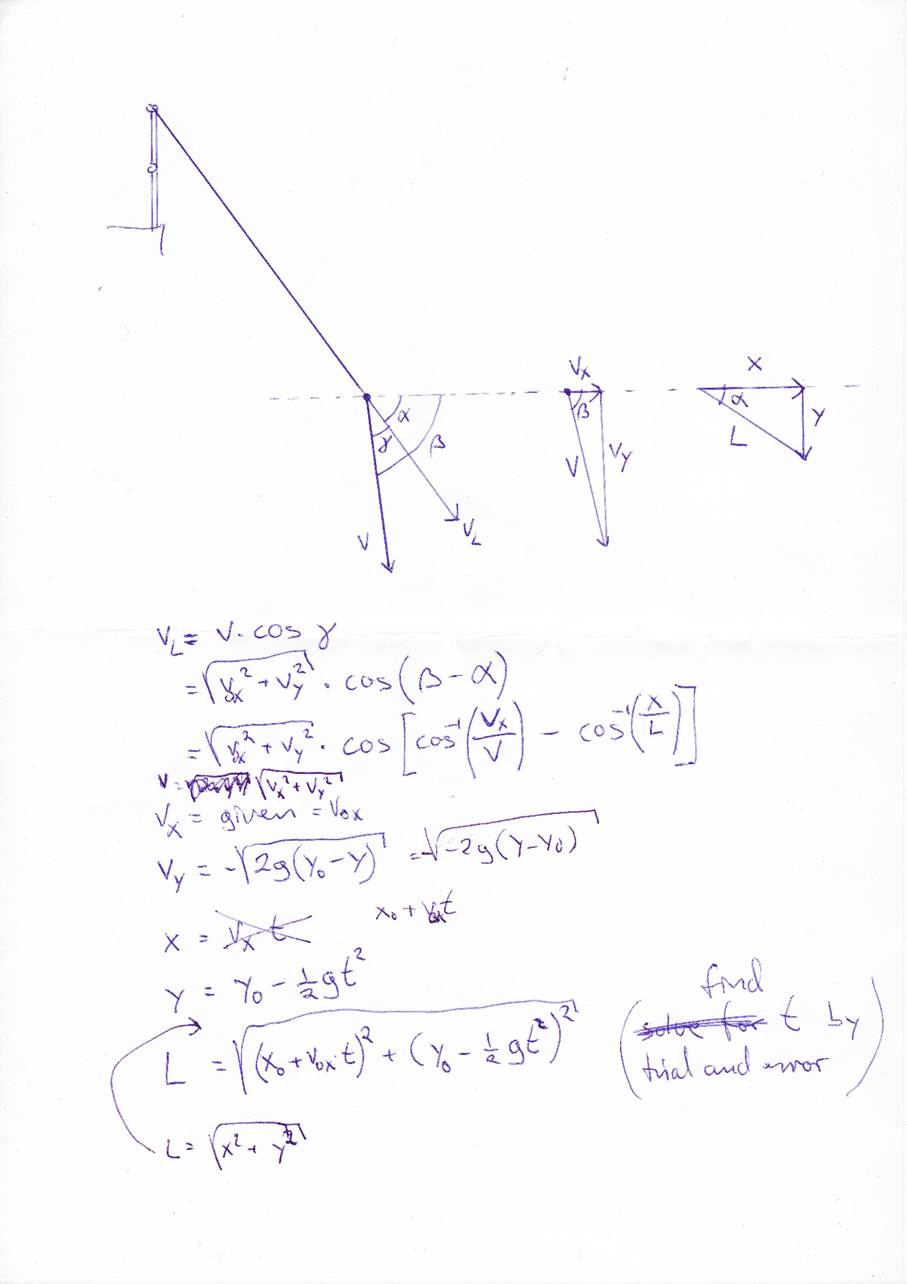 Vx X
α β α
γ β Y
L
V Vy
V VL
VL = V · cos γ
= √(Vx² + Vy²) · cos(β − α)
= √(Vx² + Vy²) · cos[cos⁻¹(Vx/V) − cos⁻¹(X/L)]
V = √(Vx² + Vy²)
Vx = given = V0x
Vy = −√(2g(Y0 − Y)) = −√(−2g(Y − Y0))
X = Vx t x0 + V0x t
Y = Y0 − ½gt²
L = √((x0 + V0x t)² + (Y0 − ½gt²)²)
(find
solve for t by
trial and error)
L = √(x² + y²)